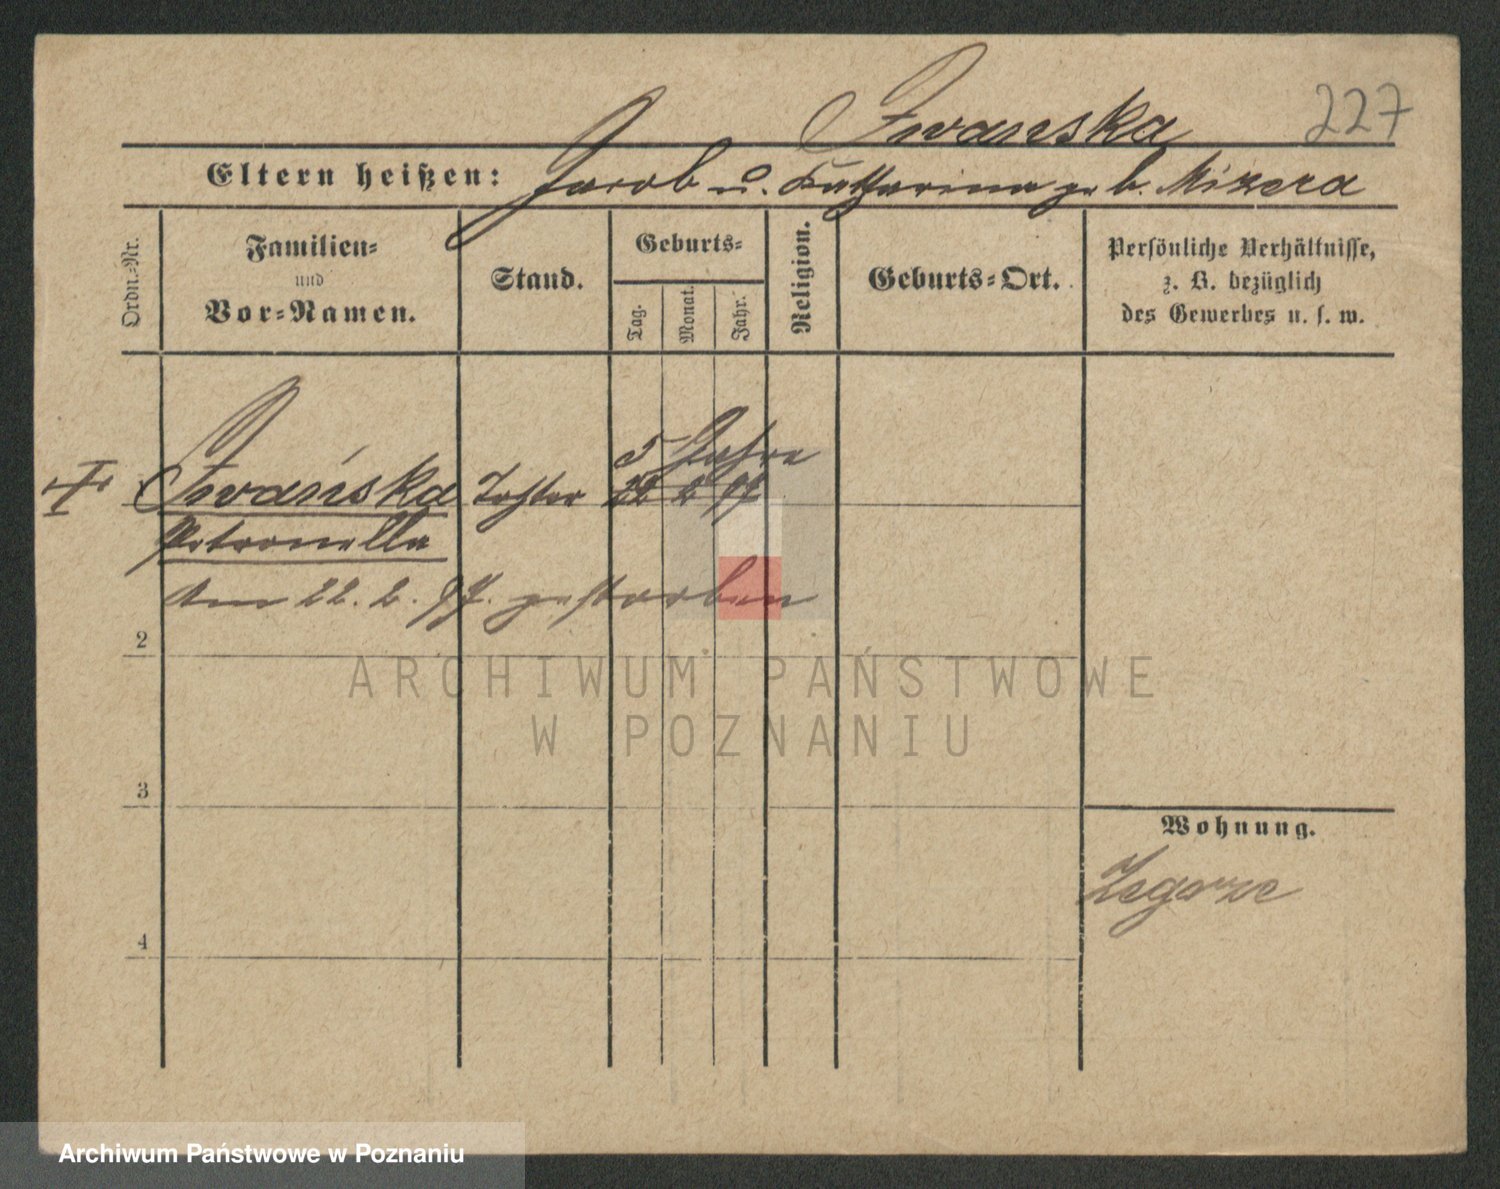 Iwańska
227
Eltern heißen: Jacob u. Katharina geb. Mizera
Ordn.-Nr.
Familien-
und
Vor-Namen.
Stand.
Geburts-
Tag.
Monat.
Jahr.
Religion.
Geburts-Ort.
Persönliche Verhältnisse,
z. B. bezüglich
des Gewerbes u. s. w.
5 Jahre
Iwańska Tochter 22 2 97
Petronella
am 22. 2. 97. gestorben
2
ARCHIWUM PAŃSTWOWE
W POZNANIU
3
Wohnung.
Zegrze
4
Archiwum Państwowe w Poznaniu